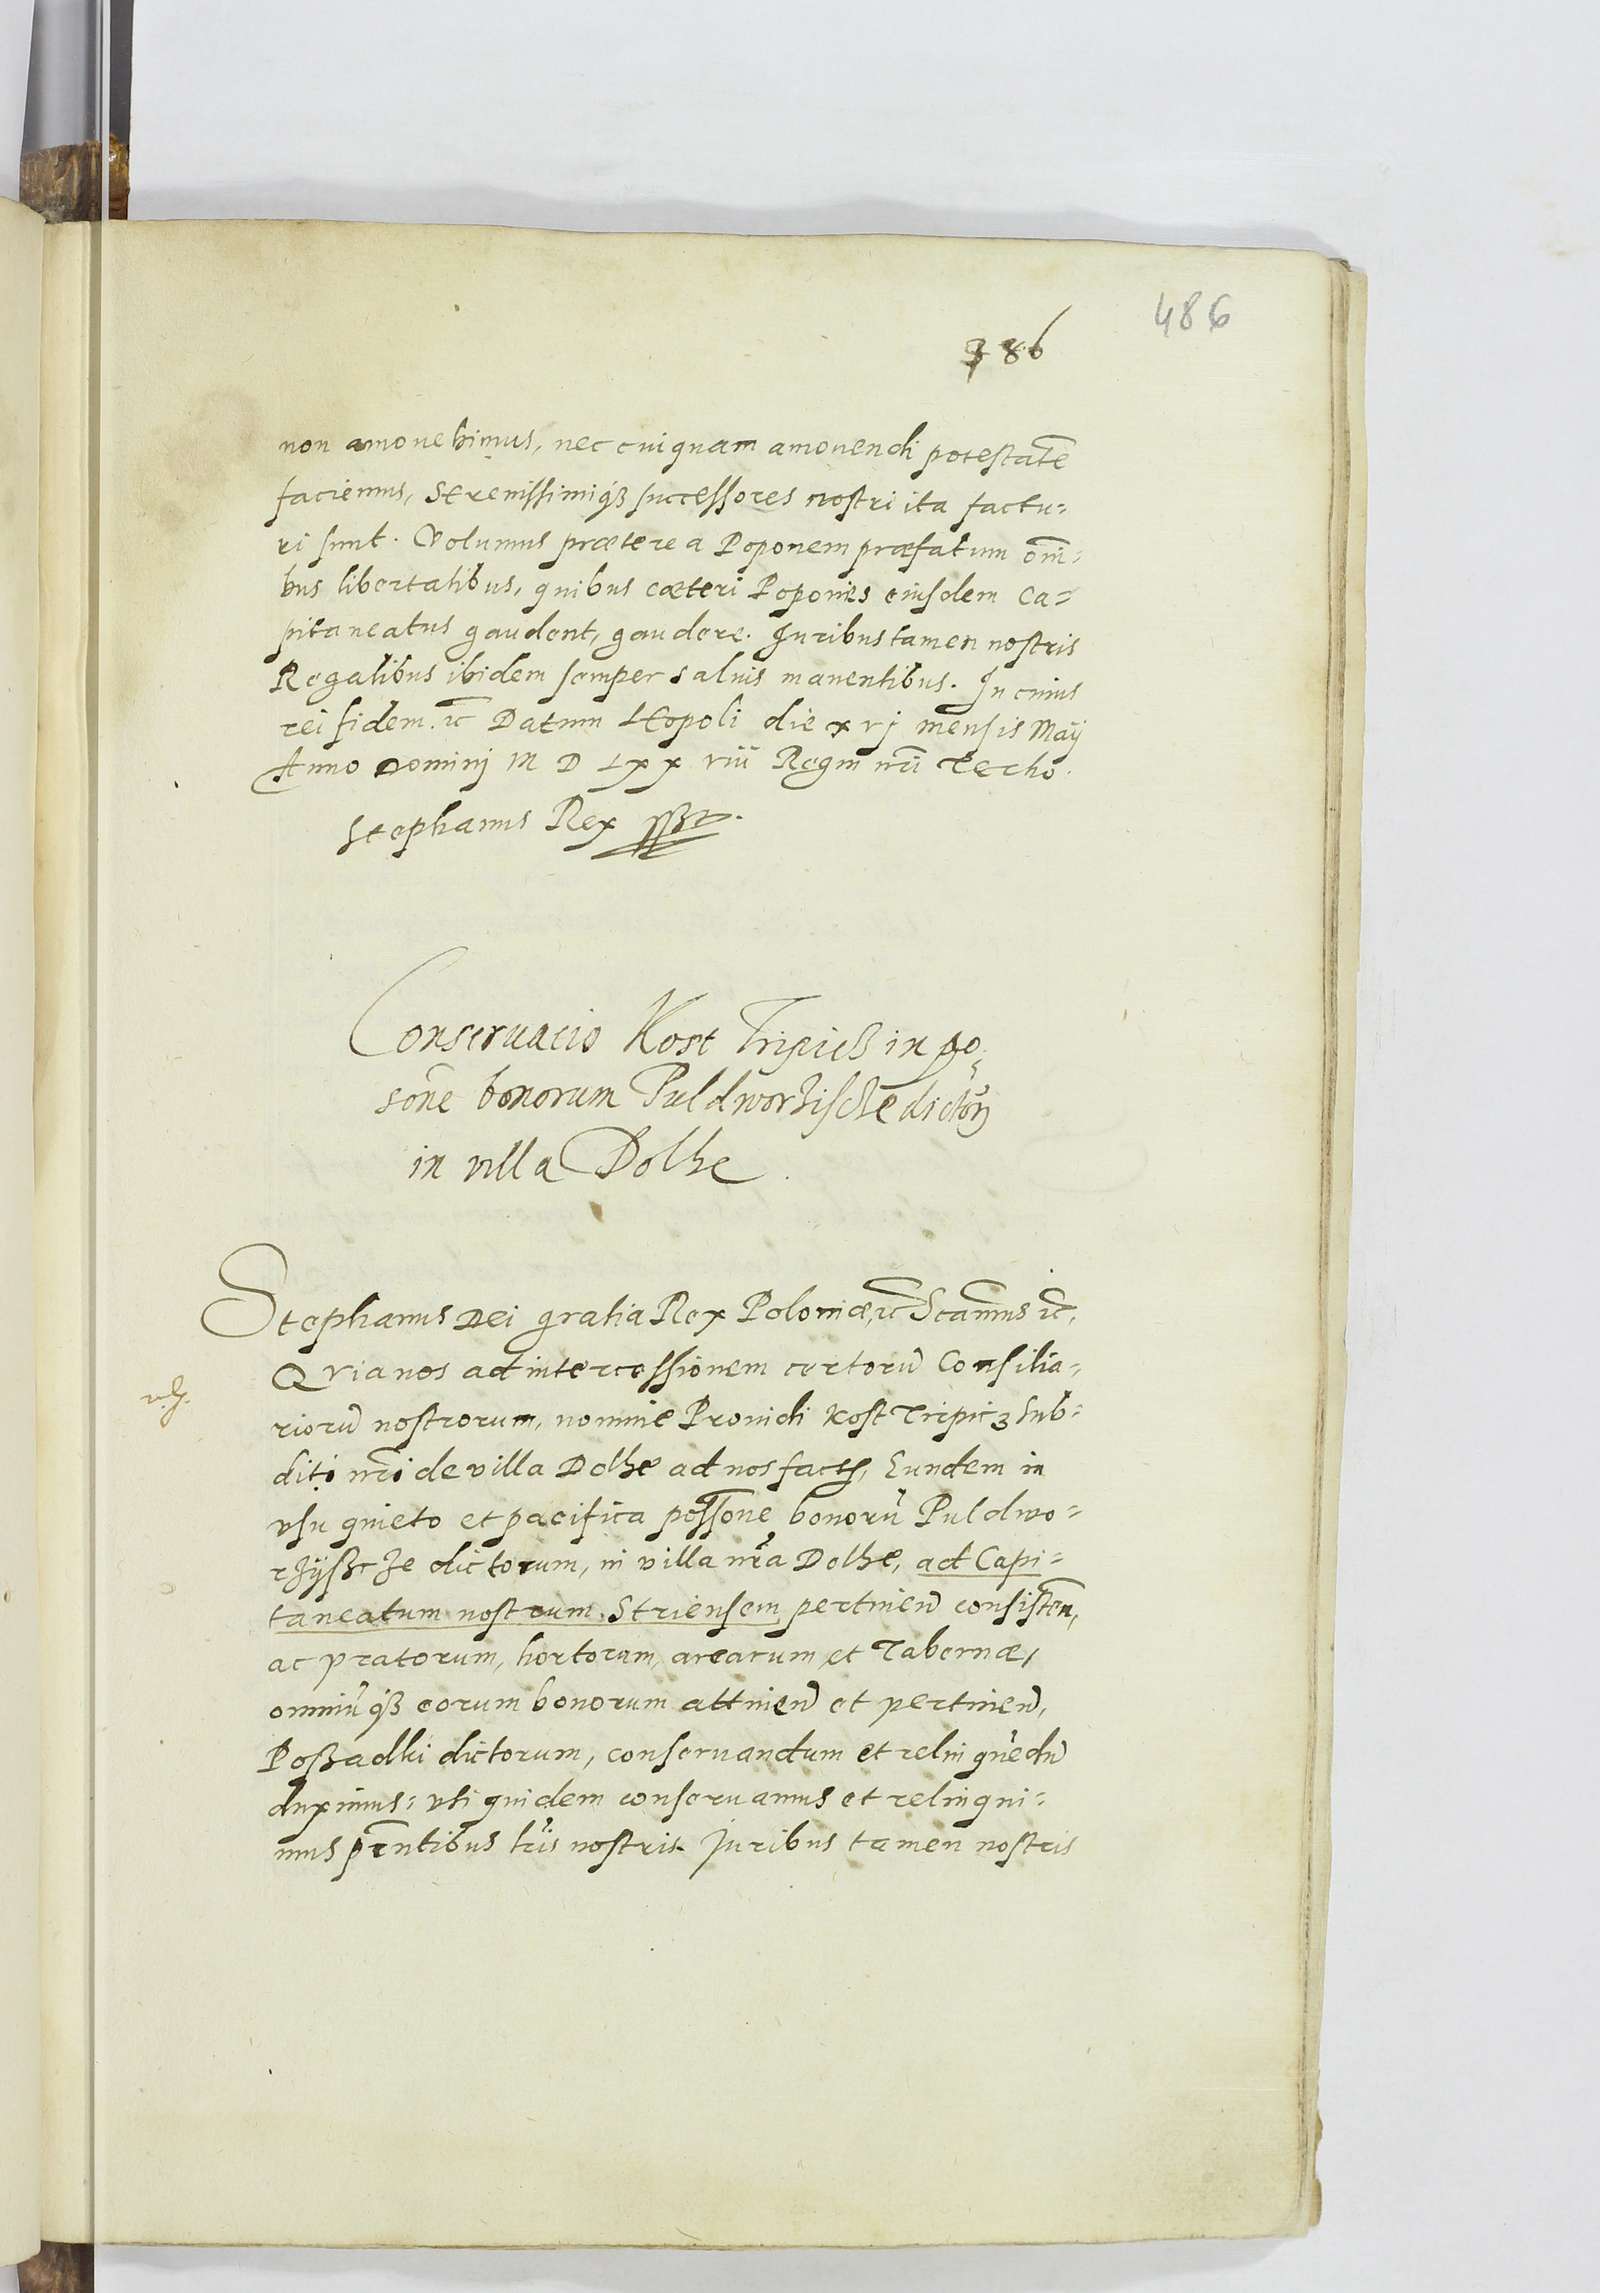 486
386
non amouebimus, nec cuiquam amouendi potestatē
faciemus, Serenissimiqꝫ successores nostri ita factu⸗
ri sunt. Volumus præterea Poponem præfatum om̄i⸗
bus libertatibus, quibus cæteri Popones eiusdem Ca⸗
pitaneatus gaudent, gaudere. Iuribus tamen nostris
Regalibus ibidem semper saluis manentibus. In cuius
rei fidem. ꝛc̄ Datum Leopoli die xvj mensis Maÿ
Anno Dominj M D Lxx viii Regni nr̄i tertio.
Stephanus Rex sst.
Conseruacio Kost Tripicz in po⸗
sōne bonorum Puldworzisczе dictorū
in villa Dolhe
Stephanus Dei gratia Rex Poloniæ, ꝛc̄ Sc̄amus ꝛc̄,
Quia nos ad intercessionem certorū Consilia⸗
v.g.
riorū nostrorum, nomine Prouidi Kost Tripicz Sub⸗
diti nr̄i de villa Dolhe ad nos factā, Eundem in
vsu quieto et pacifica possōne bonorū Puldwo⸗
rzÿscze dictorum, in villa nr̄a Dolhe, ad Capi⸗
taneatum nostrum Striensem pertinen̄ consisten̄,
ac pratorum, hortorum, arearum et Tabernæ,
omniūqꝫ eorum bonorum attinen̄ et pertinen̄,
Poßadki dictorum, conseruandum et relinquēdū
duximus: vti quidem conseruamus et relinqui⸗
mus pr̄ntibus lr̄is nostris. Iuribus tamen nostris